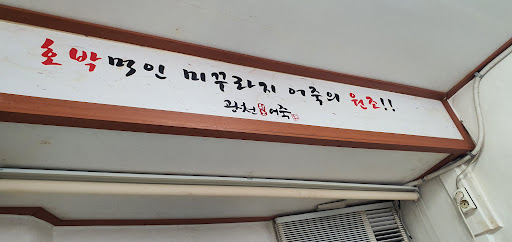 호박먹인 미꾸라지 어죽의 원조!!
광천 어죽